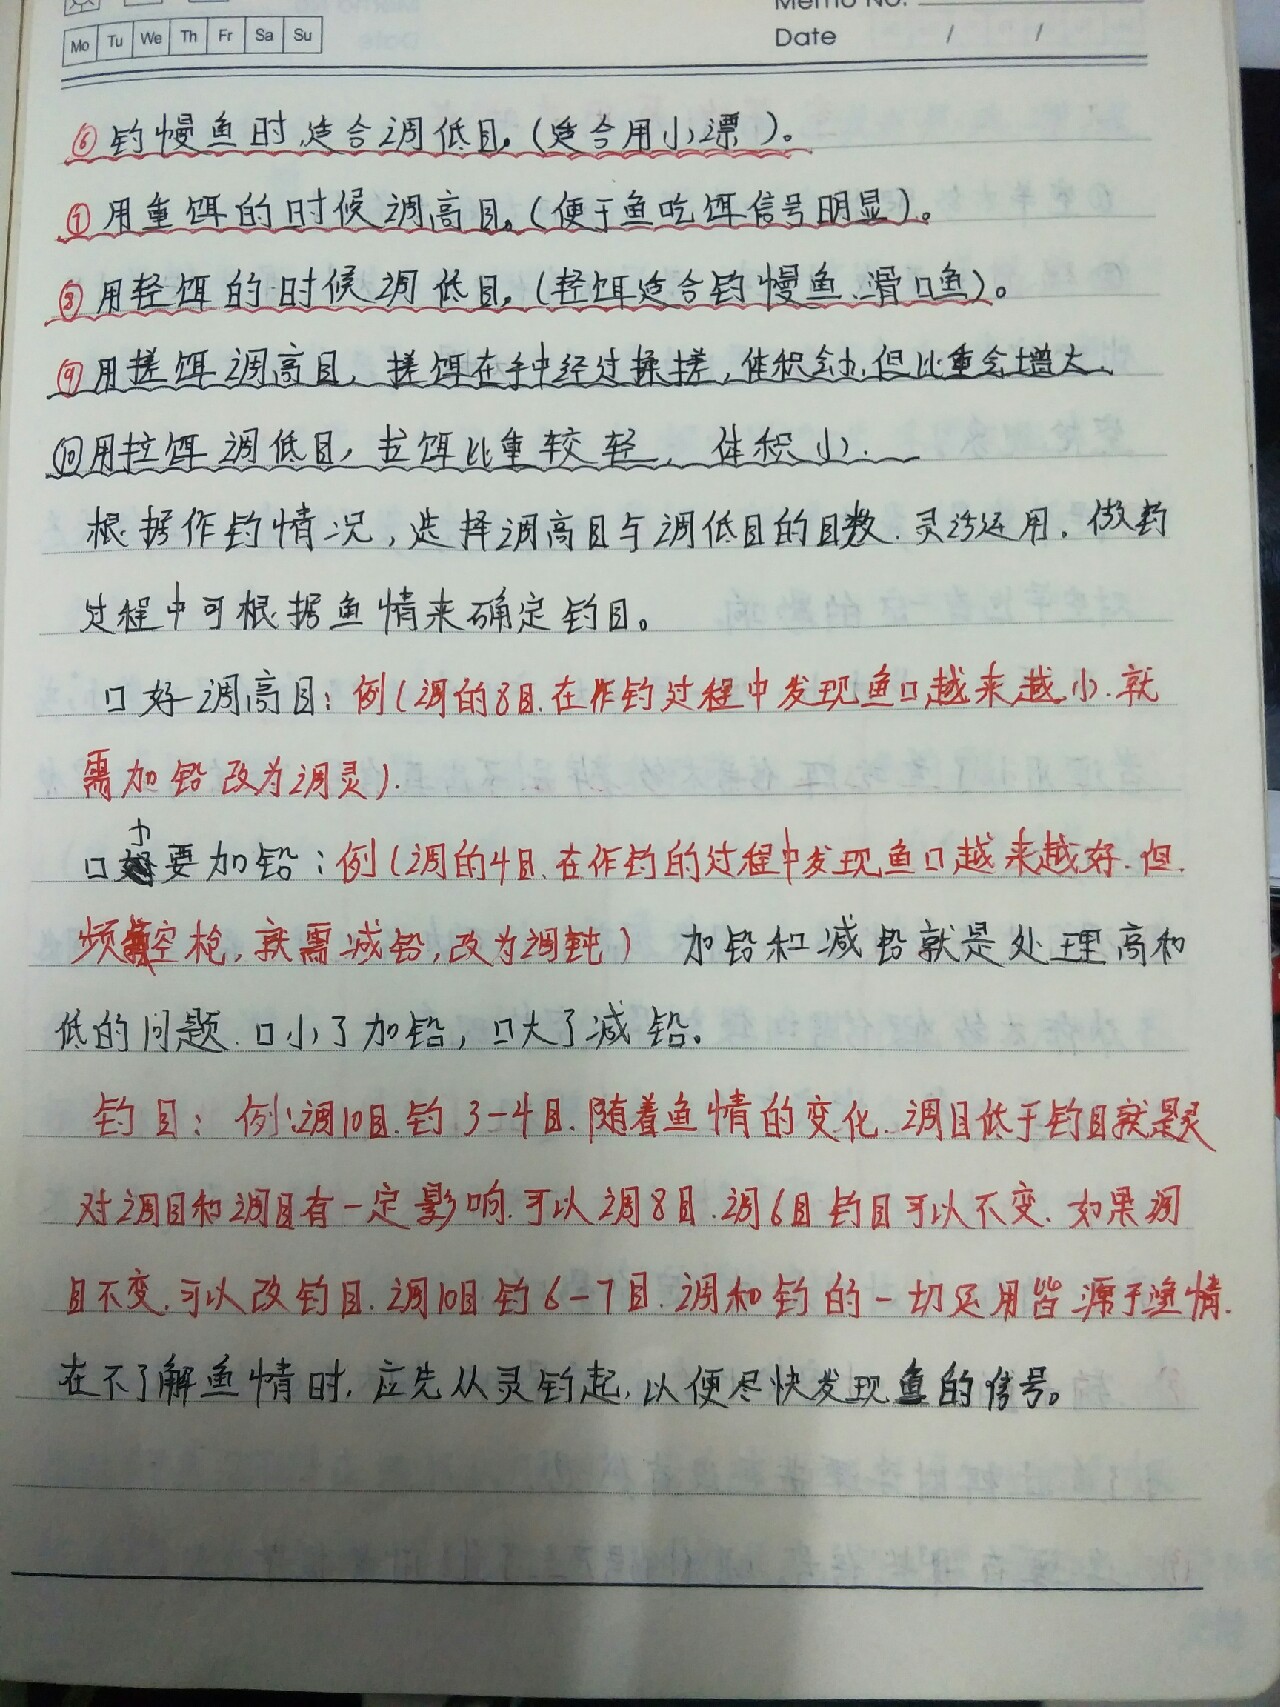 Memo No.
Mo Tu We Th Fr Sa Su
Date / /
⑥钓慢鱼时适合调低目。(适合用小漂)。
⑦用重饵的时候调高目。(便于鱼吃饵信号明显)。
⑧用轻饵的时候调低目。(轻饵适合钓慢鱼、滑口鱼)。
⑨用搓饵调高目,搓饵在手中经过揉搓,体积会小.但比重会增大.
⑩用拉饵调低目,拉饵比重较轻,体积小.
根据作钓情况,选择调高目与调低目的目数.灵活运用.做钓
过程中可根据鱼情来确定钓目。
口好调高目:例(调的8目.在作钓过程中发现鱼口越来越小.就
需加铅改为调灵).
口小要加铅:例(调的4目.在作钓的过程中发现鱼口越来越好.但.
频繁空枪,就需减铅,改为调钝) 加铅和减铅就是处理高和
低的问题.口小了加铅,口大了减铅。
钓目:例:调10目.钓3-4目.随着鱼情的变化.调目低于钓目就是灵
对调目和调目有一定影响.可以调8目.调6目钓目可以不变.如果调
目不变.可以改钓目.调10目钓6-7目.调和钓的一切运用皆源于渔情.
在不了解鱼情时.应先从灵钓起.以便尽快发现鱼的信号。